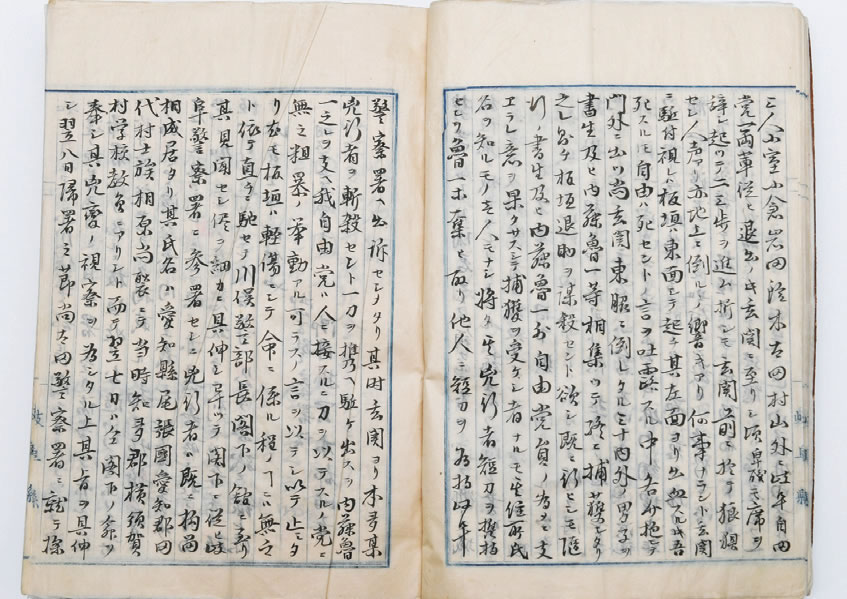 三ノ人小室小倉岩田鈴木太田村山外ニ此年自由
党一両輩位ト退出ノキ玄関ニ至リシ頃卑職モ席ヲ
辞シ起ツノ二三歩ヲ進ム折シモ玄関前ニ於テ狼狽
セシ人声アリ亦地上ニ倒ルノ響キアリ何事ナラント玄関
ニ駈付視レハ板垣ハ東面シテ起チ其左面ヨリ出血スルモ吾
死スルモ自由ハ死セントノ言ヲ吐露スル中各分抱シテ
門外ニ出ツ尚玄関東服ニ倒レタル三十内外ノ男子ヲ
書生及ヒ内藤魯一等相集ツテ終ニ捕獲シタリ
之レ則チ板垣退助ヲ謀殺セント欲シ既ニ行ヒシモ
行ノ書生及ヒ内藤魯一外自由党員ノ為メニ支
エラレ意ヲ果タサスシテ捕獲ヲ受ケシ者ナルモ生住所氏
名ヲ知ルモノ壱人モナシ将タ生兇行者短刀ヲ携
セシヲ魯一ホ集ヒ取リ他人ニ短刀ヲ為持此年
警察署ヘ出訴セシメタリ其時玄関ヨリ本多某
兇行者ヲ斬殺セント一刀ヲ携ヘ駈ケ出スヲ内藤魯
一之レヲ支ヘ我自由党ハ人ニ接スルニ刀ヲ以テスル党ニ
無之粗暴ノ挙動アル可ラスノ言ヲ以テシ以テ止ミタ
リ尤モ板垣ハ軽傷ニシテ命ニ係ル程ノコトニ無之
ト依テ直チニ馳セテ川俣警部長閣下ノ館ニ至リ
其見聞セシ侭ヲ細カニ具伸シ畢ツテ閣下ニ従ヒ岐
阜警察署ニ参署セシニ兇行者ハ既ニ拘留
相成居タリ其氏名ハ愛知縣尾張國愛知郡田
代村士族相原尚褧ニテ当時知多郡横須賀
村学校教員ニアリント而テ翌七日ハ仝閣下ノ命ヲ
奉シ其兇変ノ視察ヲ為シタル上其旨ヲ具伸
シ翌八日帰署之節尚太田警察署ニ就テ探
岐阜縣